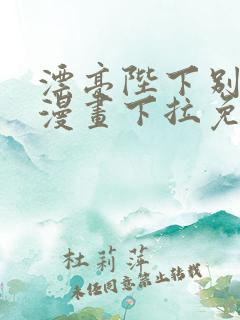 漂亮陛下别
漫畫下拉免
杜莉萍
未经同意禁止转载